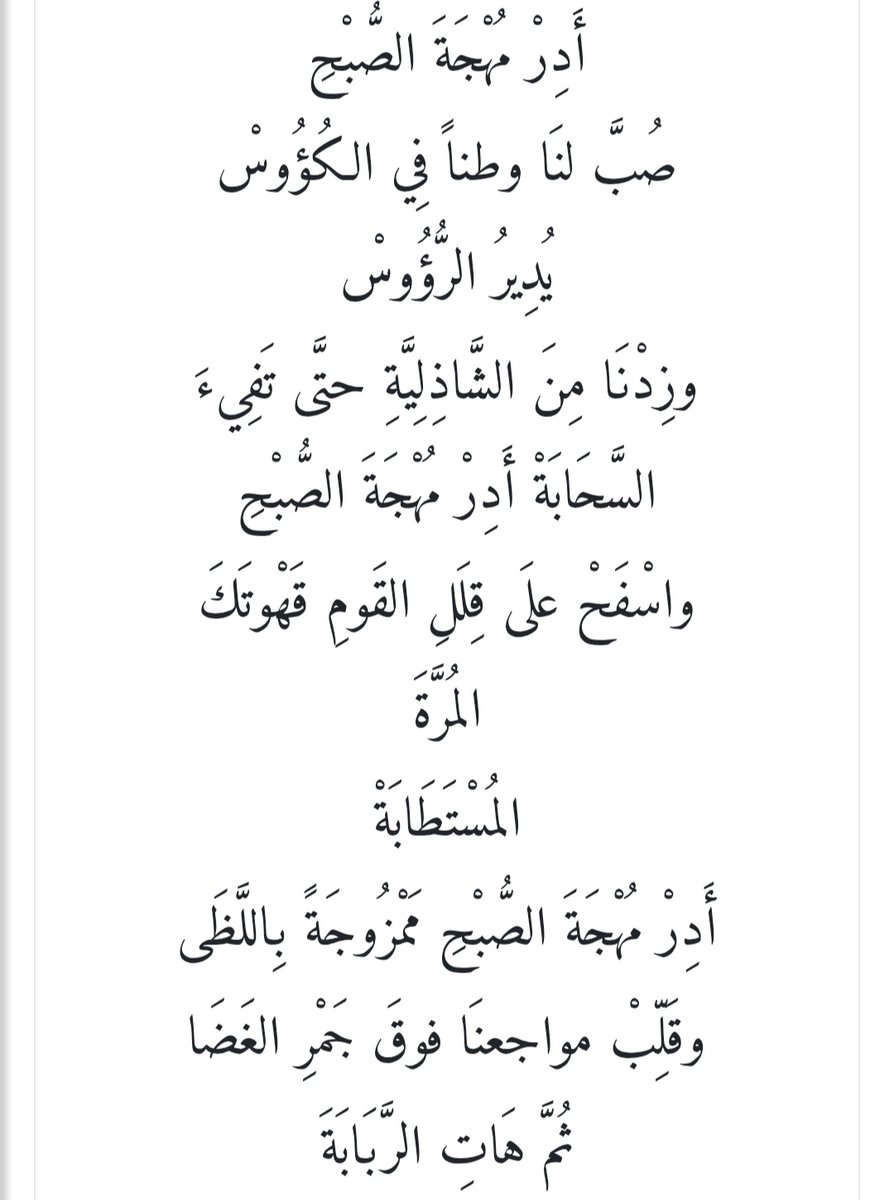 أَدِرْ مُهْجَةَ الصُّبْحِ
صُبَّ لنَا وطناً فِي الكُؤُوسْ
يُدِيرُ الرُّؤُوسْ
وزِدْنَا مِنَ الشَّاذِلِيَّةِ حتَّى تَفِيءَ
السَّحَابَةْ أَدِرْ مُهْجَةَ الصُّبْحِ
واسْفَحْ علَى قِلَلِ القَومِ قَهْوتَكَ
المُرَّةَ
المُسْتَطَابَةْ
أَدِرْ مُهْجَةَ الصُّبْحِ مَمْزُوجَةً بِاللَّظَى
وقَلِّبْ مواجعنَا فوقَ جَمْرِ الغَضَا
ثُمَّ هَاتِ الرَّبَابَةَ